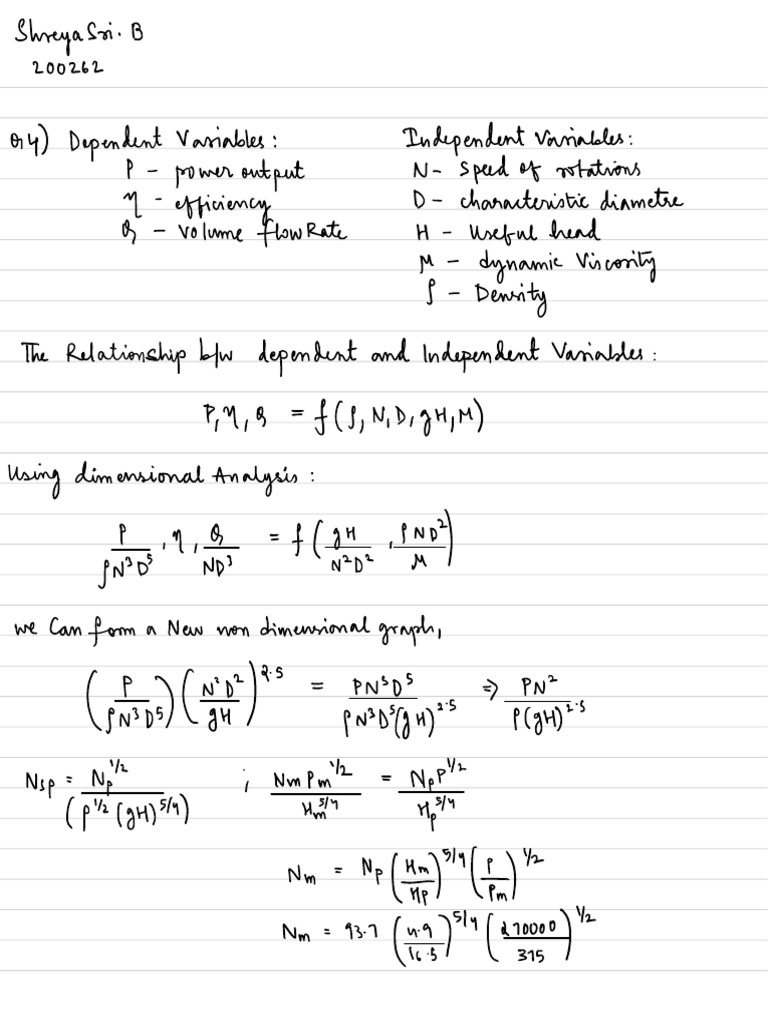 Shreya Sri. B
200262
Q4) Dependent Variables :
P - power output
η - efficiency
Q - Volume flow Rate
Independent Variables:
N - Speed of rotations
D - characteristic diametre
H - Useful head
μ - dynamic Viscosity
ρ - Density
The Relationship b/w dependent and Independent Variables :
P, η, Q = f(ρ, N, D, gH, μ)
Using dimensional Analysis :
P/ρN³D⁵ , η , Q/ND³ = f(gH/N²D² , ρND²/μ)
we Can form a New non dimensional graph,
(P/ρN³D⁵)(N²D²/gH)^2.5 = PN⁵D⁵/ρN³D⁵(gH)^2.5 ⇒ PN²/ρ(gH)^2.5
Nsp = Np^1/2/(ρ^1/2 (gH)^5/4) ; Nm Pm^1/2/Hm^5/4 = Np P^1/2/Hp^5/4
Nm = Np (Hm/Hp)^5/4 (P/Pm)^1/2
Nm = 93.7 (4.9/16.5)^5/4 (270000/315)^1/2